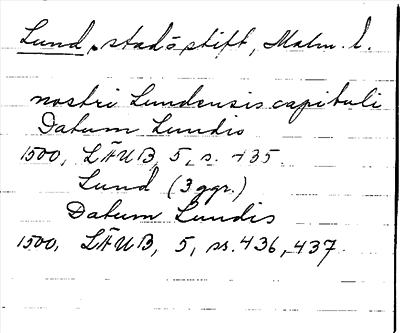 Lund, stad o. stift, Malm. l.
nostri Lundensis capituli
Datum Lundis
1500, LÄUB, 5, s. 435.
Lund (3 ggr.)
Datum Lundis
1500, LÄUB, 5, ss. 436, 437.